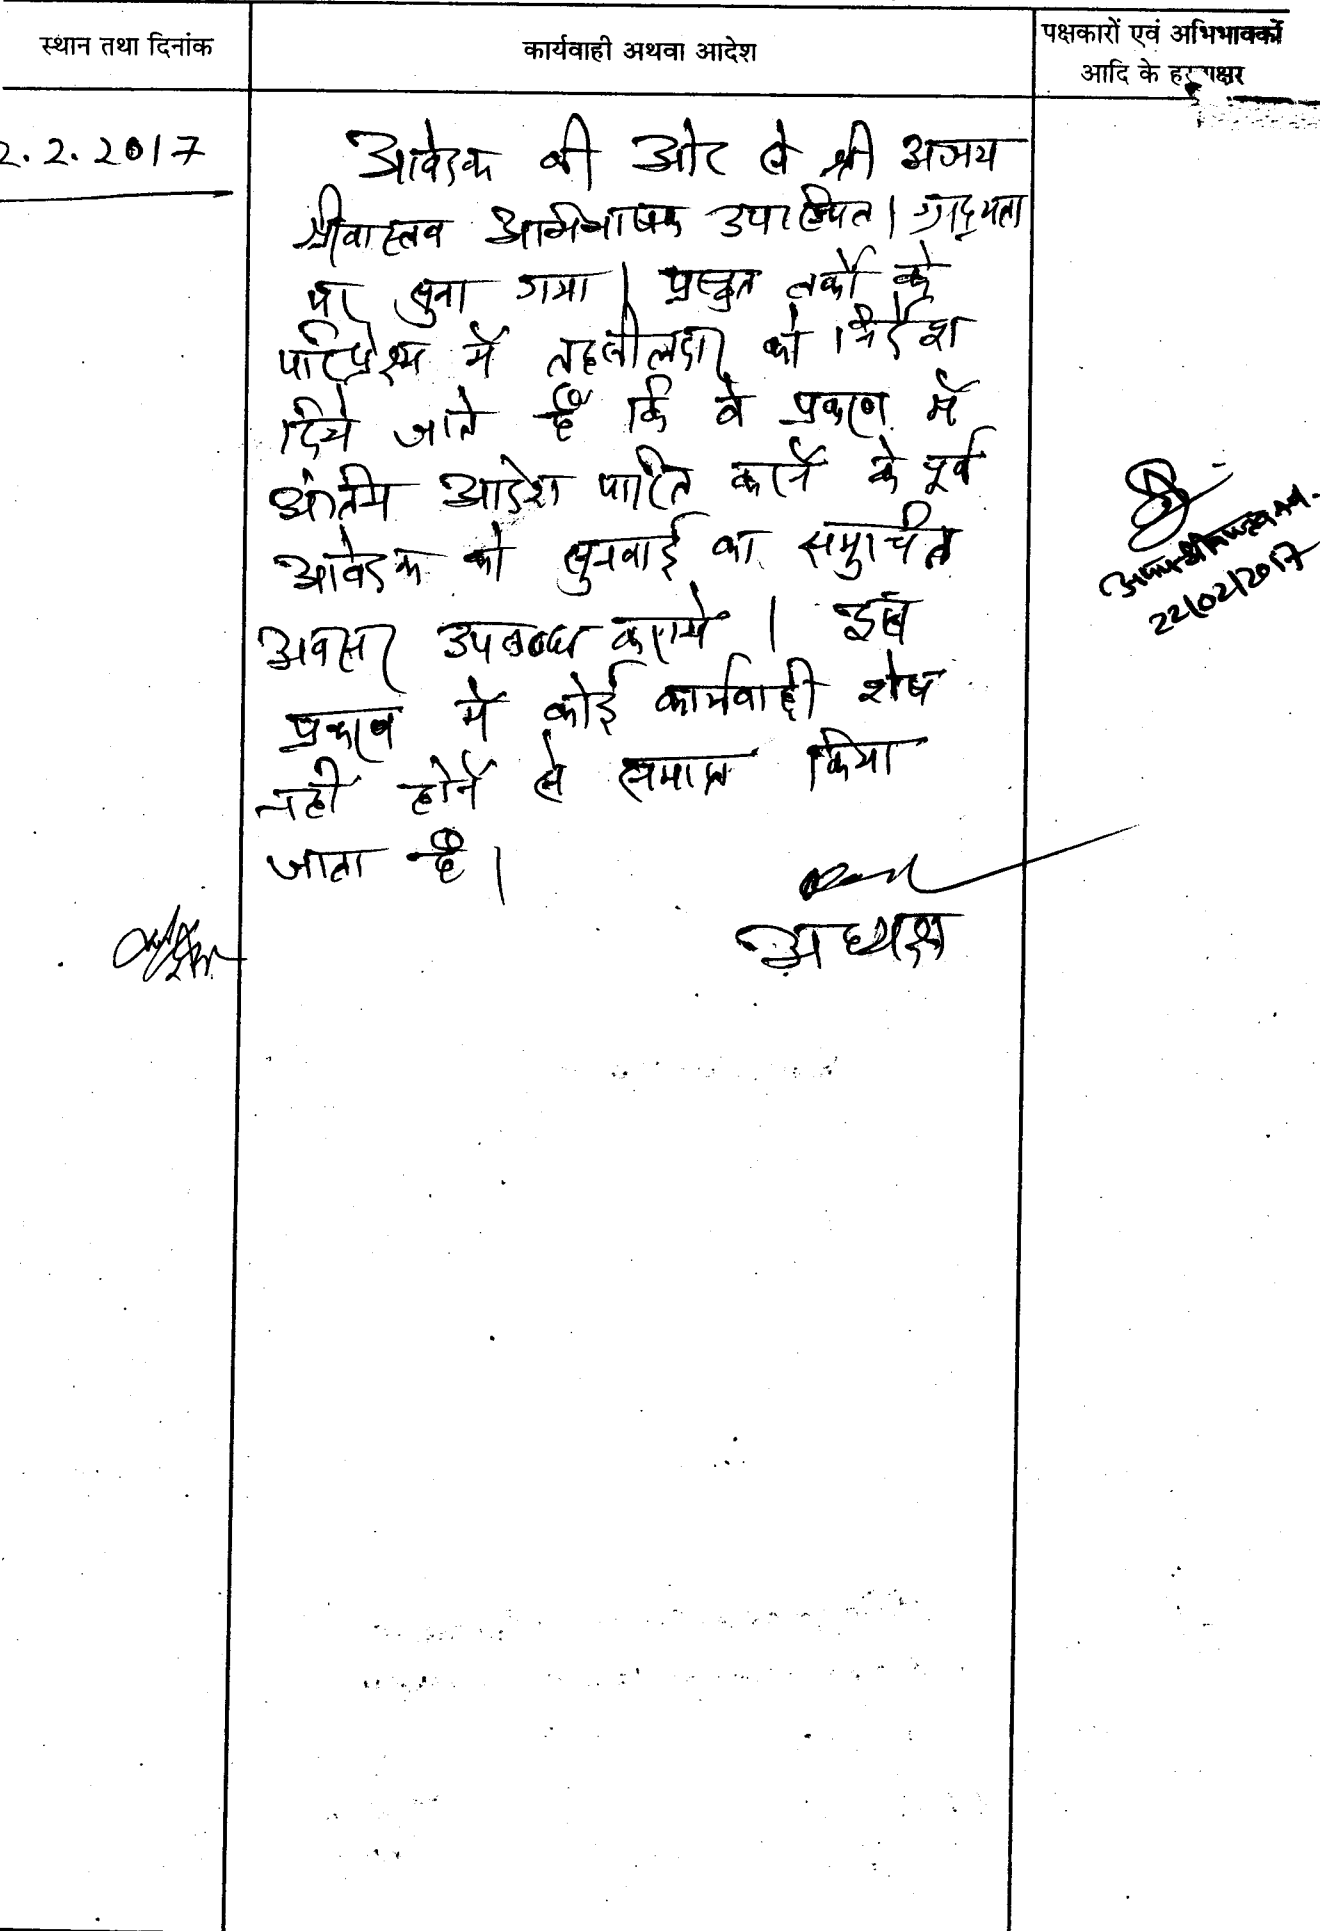 स्थान तथा दिनांक
कार्यवाही अथवा आदेश
पक्षकारों एवं अभिभावकों
आदि के हस्ताक्षर
2.2.2017
आवेदक की ओर से श्री अजय
श्रीवास्तव अभिभाषक उपस्थित। ग्राह्यता
पर सुना गया। प्रस्तुत तर्कों के
परिप्रेक्ष्य में तहसीलदार को निर्देश
दिये जाते हैं कि वे प्रकरण में
अंतिम आदेश पारित करने के पूर्व
आवेदक को सुनवाई का समुचित
अवसर उपलब्ध कराये। इस
प्रकरण में कोई कार्यवाही शेष
नहीं होने से समाप्त किया
जाता है।
अध्यक्ष
अजय श्रीवास्तव
22/02/2017